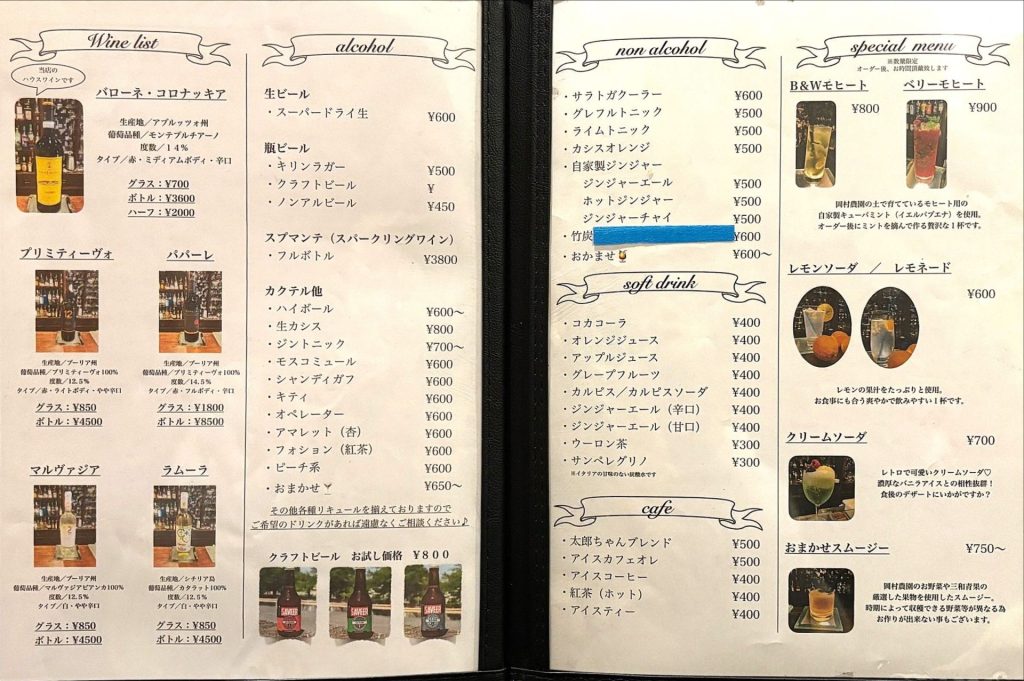 Wine list
当店の
ハウスワインです
バローネ・コロナッキア
生産地／アブルッツォ州
葡萄品種／モンテプルチアーノ
度数／１４％
タイプ／赤・ミディアムボディ・辛口
グラス：¥700
ボトル：¥3600
ハーフ：¥2000
プリミティーヴォ
生産地／プーリア州
葡萄品種／プリミティーヴォ100%
度数／12.5％
タイプ／赤・ライトボディ・やや辛口
グラス：¥850
ボトル：¥4500
パパーレ
生産地／プーリア州
葡萄品種／プリミティーヴォ100%
度数／14.5％
タイプ／赤・フルボディ・辛口
グラス：¥1800
ボトル：¥8500
マルヴァジア
生産地／プーリア州
葡萄品種／マルヴァジアビアンカ100%
度数／12.5％
タイプ／白・やや辛口
グラス：¥850
ボトル：¥4500
ラムーラ
生産地／シチリア島
葡萄品種／カタラット100%
度数／12.5％
タイプ／白・やや辛口
グラス：¥850
ボトル：¥4500
alcohol
生ビール
・スーパードライ生 ¥600
瓶ビール
・キリンラガー ¥500
・クラフトビール ¥
・ノンアルビール ¥450
スプマンテ（スパークリングワイン）
・フルボトル ¥3800
カクテル他
・ハイボール ¥600～
・生カシス ¥800
・ジントニック ¥700～
・モスコミュール ¥600
・シャンディガフ ¥600
・キティ ¥600
・オペレーター ¥600
・アマレット（杏） ¥600
・フォション（紅茶） ¥600
・ピーチ系 ¥600
・おまかせ🍸 ¥650～
その他各種リキュールを揃えておりますので
ご希望のドリンクがあれば遠慮なくご相談ください♪
クラフトビール お試し価格 ¥８００
SAVEER
SAVEER
SAVEER
non alcohol
・サラトガクーラー ¥600
・グレフルトニック ¥500
・ライムトニック ¥500
・カシスオレンジ ¥500
・自家製ジンジャー
ジンジャーエール ¥500
ホットジンジャー ¥500
ジンジャーチャイ ¥500
・竹炭 ¥600
・おかませ🍹 ¥600～
soft drink
・コカコーラ ¥400
・オレンジジュース ¥400
・アップルジュース ¥400
・グレープフルーツ ¥400
・カルピス／カルピスソーダ ¥400
・ジンジャーエール（辛口） ¥400
・ジンジャーエール（甘口） ¥400
・ウーロン茶 ¥300
・サンペレグリノ ¥300
※イタリアの甘味のない炭酸水です
cafe
・太郎ちゃんブレンド ¥500
・アイスカフェオレ ¥500
・アイスコーヒー ¥400
・紅茶（ホット） ¥400
・アイスティー ¥400
special menu
※数量限定
オーダー後、お時間頂戴致します
B&Wモヒート
¥800
ベリーモヒート
¥900
岡村農園の土で育てているモヒート用の
自家製キューバミント（イエルバブエナ）を使用。
オーダー後にミントを摘んで作る贅沢な１杯です。
レモンソーダ ／ レモネード
¥600
レモンの果汁をたっぷりと使用。
お食事にも合う爽やかで飲みやすい１杯です。
クリームソーダ ¥700
レトロで可愛いクリームソーダ♡
濃厚なバニラアイスとの相性抜群！
食後のデザートにいかがですか？
おまかせスムージー ¥750～
岡村農園のお野菜や三和青果の
厳選した果物を使用したスムージー。
時期によって収穫できる野菜等が異なる為
お作りが出来ない事もございます。